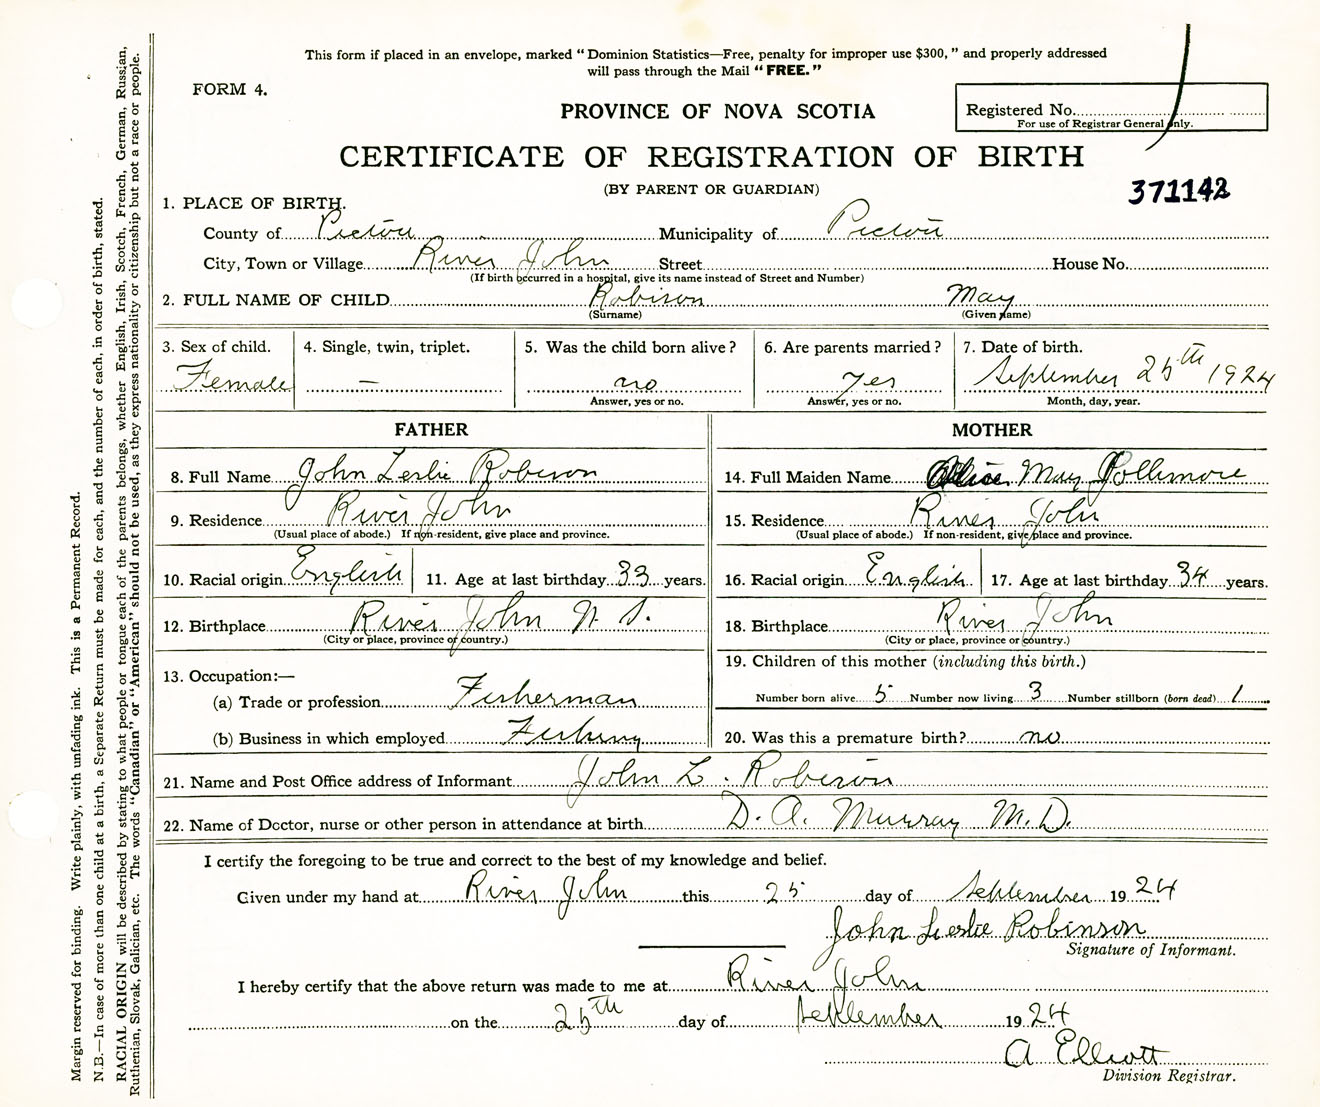 This form if placed in an envelope, marked “Dominion Statistics—Free, penalty for improper use $300,” and properly addressed
will pass through the Mail “FREE.”
FORM 4.
PROVINCE OF NOVA SCOTIA
Registered No.
For use of Registrar General only.
CERTIFICATE OF REGISTRATION OF BIRTH
(BY PARENT OR GUARDIAN)
371142
1. PLACE OF BIRTH.
County of Pictou Municipality of Pictou
City, Town or Village River John Street House No.
(If birth occurred in a hospital, give its name instead of Street and Number)
2. FULL NAME OF CHILD Robison May
(Surname) (Given name)
3. Sex of child. 4. Single, twin, triplet. 5. Was the child born alive? 6. Are parents married? 7. Date of birth.
Female — no yes September 25th 1924
Answer, yes or no. Answer, yes or no. Month, day, year.
FATHER MOTHER
8. Full Name John Leslie Robison 14. Full Maiden Name Alice May Gollimore
9. Residence River John 15. Residence River John
(Usual place of abode.) If non-resident, give place and province. (Usual place of abode.) If non-resident, give place and province.
10. Racial origin English 11. Age at last birthday 33 years. 16. Racial origin English 17. Age at last birthday 34 years.
12. Birthplace River John N. S. 18. Birthplace River John
(City or place, province or country.) (City or place, province or country.)
13. Occupation:— 19. Children of this mother (including this birth.)
(a) Trade or profession Fisherman Number born alive 5 Number now living 3 Number stillborn (born dead) 1
(b) Business in which employed Fishing 20. Was this a premature birth? no
21. Name and Post Office address of Informant John L. Robison
22. Name of Doctor, nurse or other person in attendance at birth D. A. Murray M.D.
I certify the foregoing to be true and correct to the best of my knowledge and belief.
Given under my hand at River John this 25 day of September 1924
John Leslie Robinson
Signature of Informant.
I hereby certify that the above return was made to me at River John
on the 25th day of September 1924
A Elliott
Division Registrar.
Margin reserved for binding. Write plainly, with unfading ink. This is a Permanent Record.
N.B.—In case of more than one child at a birth, a Separate Return must be made for each, and the number of each, in order of birth, stated.
RACIAL ORIGIN will be described by stating to what people or tongue each of the parents belongs, whether English, Irish, Scotch, French, German, Russian,
Ruthenian, Slovak, Galician, etc. The words “Canadian” or “American” should not be used, as they express nationality or citizenship but not a race or people.